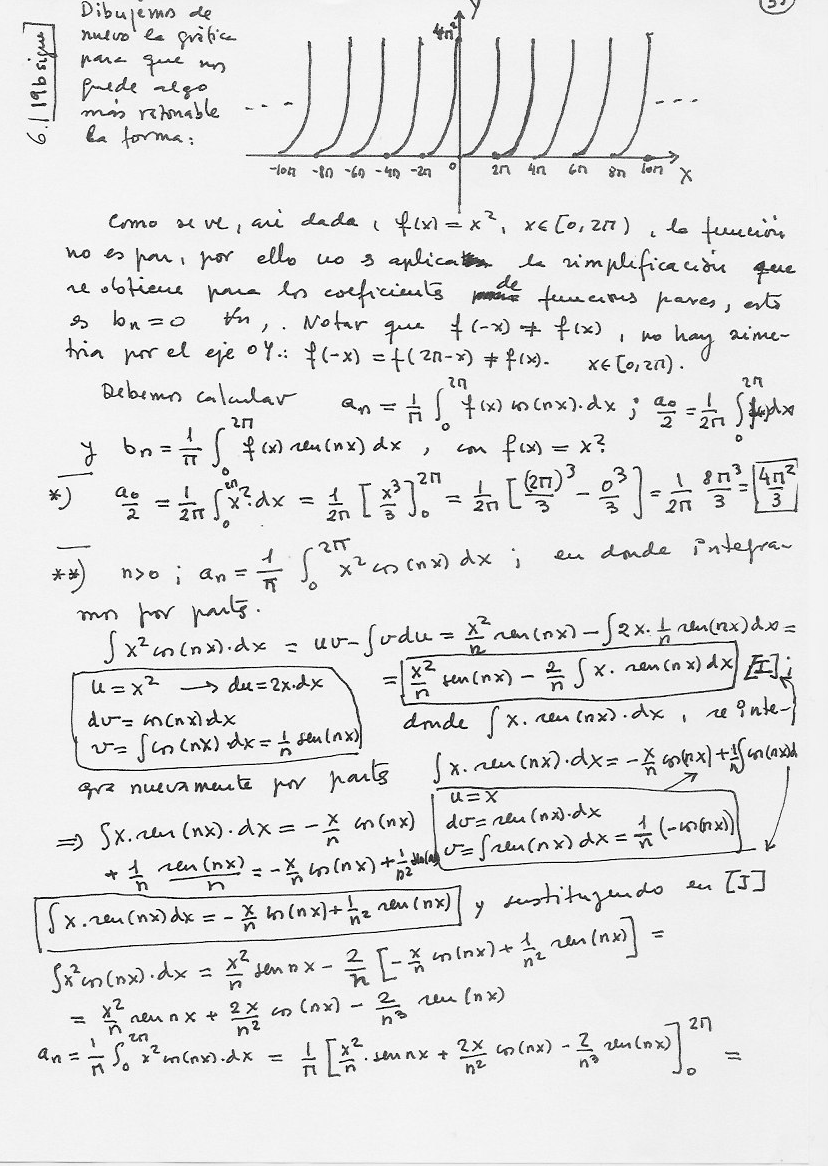 6.19b sigue
Dibujemos de
nuevo la gráfica
para que nos
quede algo
más razonable
la forma:
Y
4π²
-10π -8π -6π -4π -2π 0 2π 4π 6π 8π 10π X
Como se ve, así dada, f(x) = x², x∈[0, 2π), la función
no es par, por ello no s aplica la simplificación que
se obtiene para los coeficientes de funciones pares, esto
es bn = 0 ∀n,. Notar que f(-x) ≠ f(x), no hay sime-
tria por el eje OY.: f(-x) = f(2π-x) ≠ f(x). x∈[0, 2π).
Debemos calcular an = 1/π ∫₀^2π f(x) cos(nx)·dx ; a₀/2 = 1/2π ∫₀^2π f(x)dx
y bn = 1/π ∫₀^2π f(x) sen(nx) dx, con f(x) = x².
*) a₀/2 = 1/2π ∫₀^2π x²·dx = 1/2π [x³/3]₀^2π = 1/2π [(2π)³/3 - 0³/3] = 1/2π 8π³/3 = 4π²/3
**) n>0 ; an = 1/π ∫₀^2π x² cos(nx) dx ; en donde integra-
mos por parts.
∫x² cos(nx)·dx = uv - ∫vdu = x²/n sen(nx) - ∫2x·1/n sen(nx)dx =
= x²/n sen(nx) - 2/n ∫x·sen(nx)dx [I] ;
u = x² → du = 2x·dx
dv = cos(nx)dx
v = ∫cos(nx)dx = 1/n sen(nx)
donde ∫x.sen(nx)·dx, se inte-
gra nuevamente por parts
∫x.sen(nx)·dx = -x/n cos(nx) + 1/n ∫cos(nx)d
u = x
dv = sen(nx)·dx
v = ∫sen(nx)dx = 1/n (-cos(nx))
⇒ ∫x.sen(nx)·dx = -x/n cos(nx)
+ 1/n sen(nx)/n = -x/n cos(nx) + 1/n² sen(nx)
∫x.sen(nx)dx = -x/n cos(nx) + 1/n² sen(nx) y sustituyendo en [I]
∫x²cos(nx)·dx = x²/n sen nx - 2/n [-x/n cos(nx) + 1/n² sen(nx)] =
= x²/n sen nx + 2x/n² cos(nx) - 2/n³ sen(nx)
an = 1/π ∫₀^2π x²cos(nx)·dx = 1/π [x²/n · sen nx + 2x/n² cos(nx) - 2/n³ sen(nx)]₀^2π =